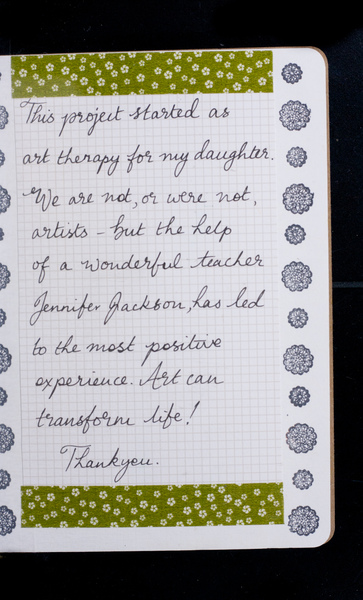 This project started as
art therapy for my daughter.
We are not, or were not,
artists - but the help
of a wonderful teacher
Jennifer Jackson, has led
to the most positive
experience. Art can
transform life!
Thankyou.